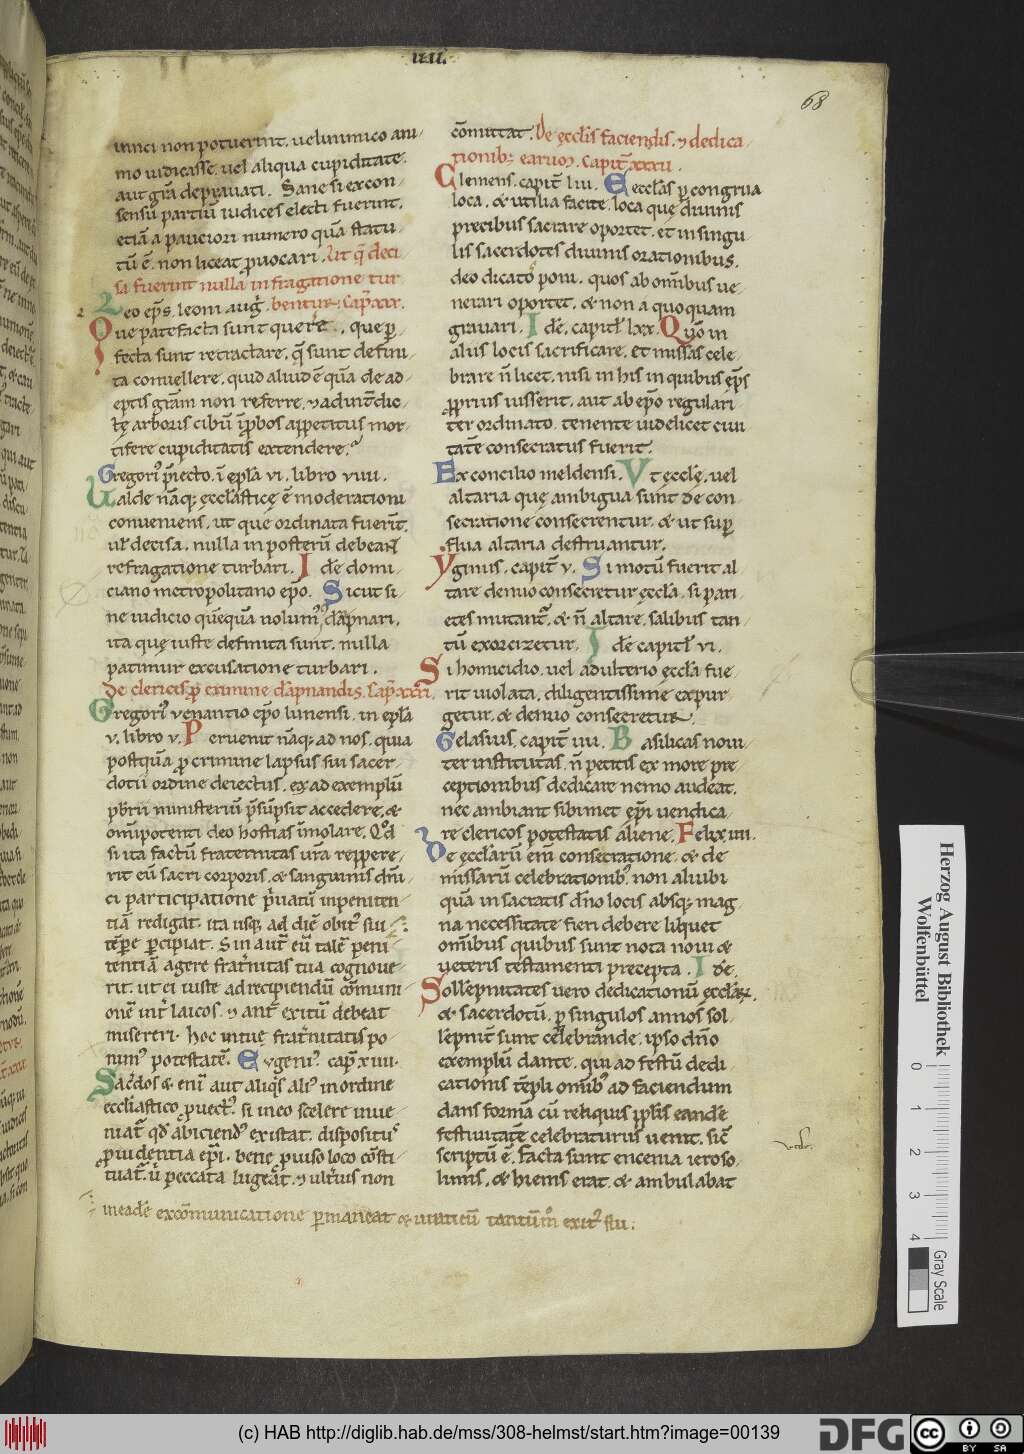 IIII.
68
uinci non potuerint. uel inimico ani/
mo iudicasse. uel aliqua cupiditate.
aut grā deprauati. Sane si excon/
sensu partiū iudices electi fuerint.
etiā a pauciori numero quā statu/
tū ē. non liceat ꝓuocari. Ut q̄ deci/
sa fuerint nulla in fragatione tur
Leo ep̄s. leoni. auḡ. bentur. Cap̄. xxx.
Que patefacta sunt querere. que ꝑ/
fecta sunt retractare. q̄ sunt defini/
ta conuellere. quid aliud ē quā de ad/
eptis gr̄am non referre. ⁊ ad int̄dic/
tę arboris cibū īꝓbos appetitus mor/
tifere cupiditatis extendere.
Gregori᾽ p̄iecto. ī ep̄la vi. libro viiii.
Ualde nāq; ęccl̄asticę ē moderationi
conueniens. ut que ordinata fuerīt.
ul̄ decisa. nulla in posterū debeant
refragatione turbari. Idē domi/
ciano metropolitano ep̄o. Sicut si/
ne iudicio quēquā nolum᾽ dāpnari.
ita quę iuste definita sunt. nulla
patimur excusatione turbari.
De clericis ꝓ crimine dāpnandis. Cap̄. xxxi.
Gregori᾽ venantio ep̄o lunensi. in ep̄la
v. libro v. Peruenit nāq; ad nos. quia
postquā ꝓ crimine lapsus sui sacer/
dotii ordine deiectus. ex ad exemplū
p̄brii ministeriū p̄sūpsit accedere. &
om̄ipotenti deo hostias īmolare. Qđ
si ita factū fraternitas ur̄a reppere/
rit eū sacri corporis. & sanguinis dn̄i/
ci participatione p̄uatū inpeniten/
tiā redigat. ita usq; ad diē obit᾽ sui
tēpe ꝑcipiat. Sin aut̄ eū talē peni/
tentiā agere frat̄nitas tua cognoue/
rit. ut ei iuste ad recipiendū cōmuni/
onē int̄ laicos. ⁊ ant̄ exitū debeat
misereri. hoc in tuę frat̄nitatis po/
nim᾽ potestatē. Eugeni᾽. cap̄. xiiii.
Sac̄dos & eni᾽ aut aliq̄s ali᾽ in ordine
eccl̄iastico ꝓuect᾽. si in eo scelere inue/
niat̄ qđ abiciend᾽ existat. dispositus
ꝓuidentia ep̄i. bene ꝓuiso loco cōsti/
tuat̄. ū peccata lugeāt. ⁊ ult̄ius non
in eadē excōmunicatione ꝑmaneat & uiaticū tantūm̄ exit᾽ sui.
cōmittat. De ęccl̄is faciendis. ⁊ dedica/
tionib; earum. Capit̄. xxxii.
Clemens. capit̄. liii. Eccl̄as ꝑ congrua
loca. & utilia facite. loca quę diuinis
precibus sacrare oportet. et in singu/
lis sacerdotes diuinis orationibus.
deo dicatos poni. quos ab omībus ue/
nerari oportet. & non a quoquam
grauari. Idē. capitl̄. lxx. Quō in
aliis locis sacrificare. et missas cele/
brare n̄ licet. nisi in his in quibus ep̄s
ꝓprius iusserit. aut ab ep̄o regulari/
ter ordinato. tenente uidelicet ciui
tatē consecratus fuerit.
Ex concilio meldensi. Vt ęccl̄ę. uel
altaria quę ambigua sunt de con/
secratione consecrentur. & ut suꝑ/
flua altaria destruantur.
Yginus. capit̄. v. Si motū fuerit al/
tare denuo consecretur ęccl̄a. si pari/
etes mutant̄. & n̄ altare. salibus tan/
tū exorcizetur. Idē capitl̄. vi.
Si homicidio. uel adulterio ęccl̄a fue/
rit uiolata. diligentissime expur/
getur. & denuo consecretur.
Gelasius. capit̄. iiii. Basilicas noui/
ter institutas. n̄ petitis ex more pre/
ceptionibus dedicare nemo audeat.
nec ambiant sibimet ep̄i uendica/
re clericos potestatis aliene. Felix. iiii.
De ęccl̄arū em̄ consecratione. & de
missarū celebrationib᾽. non alicubi
quā in sacratis dn̄o locis absq; mag/
na necessitate fieri debere liquet
omībus quibus sunt nota noui &
ueteris testamenti precepta. Idē.
Sollempnitates uero dedicationū ęccl̄arum.
& sacerdotū. ꝑ singulos annos sol/
lēpnit̄ sunt celebrande. ipso dn̄o
exemplū dante. qui ad festū dedi/
cationis tēpli omīb᾽ ad faciendum
dans formā cū reliquis ppl̄is eandē
festiuitatē celebraturus uenit. sic̄
scriptū ē. Facta sunt encenia ieroso/
limis. & hiems erat. & ambulabat
Herzog August Bibliothek
Wolfenbüttel
0 1 2 3 4
Gray Scale
(c) HAB http://diglib.hab.de/mss/308-helmst/start.htm?image=00139
DFG
cc BY SA